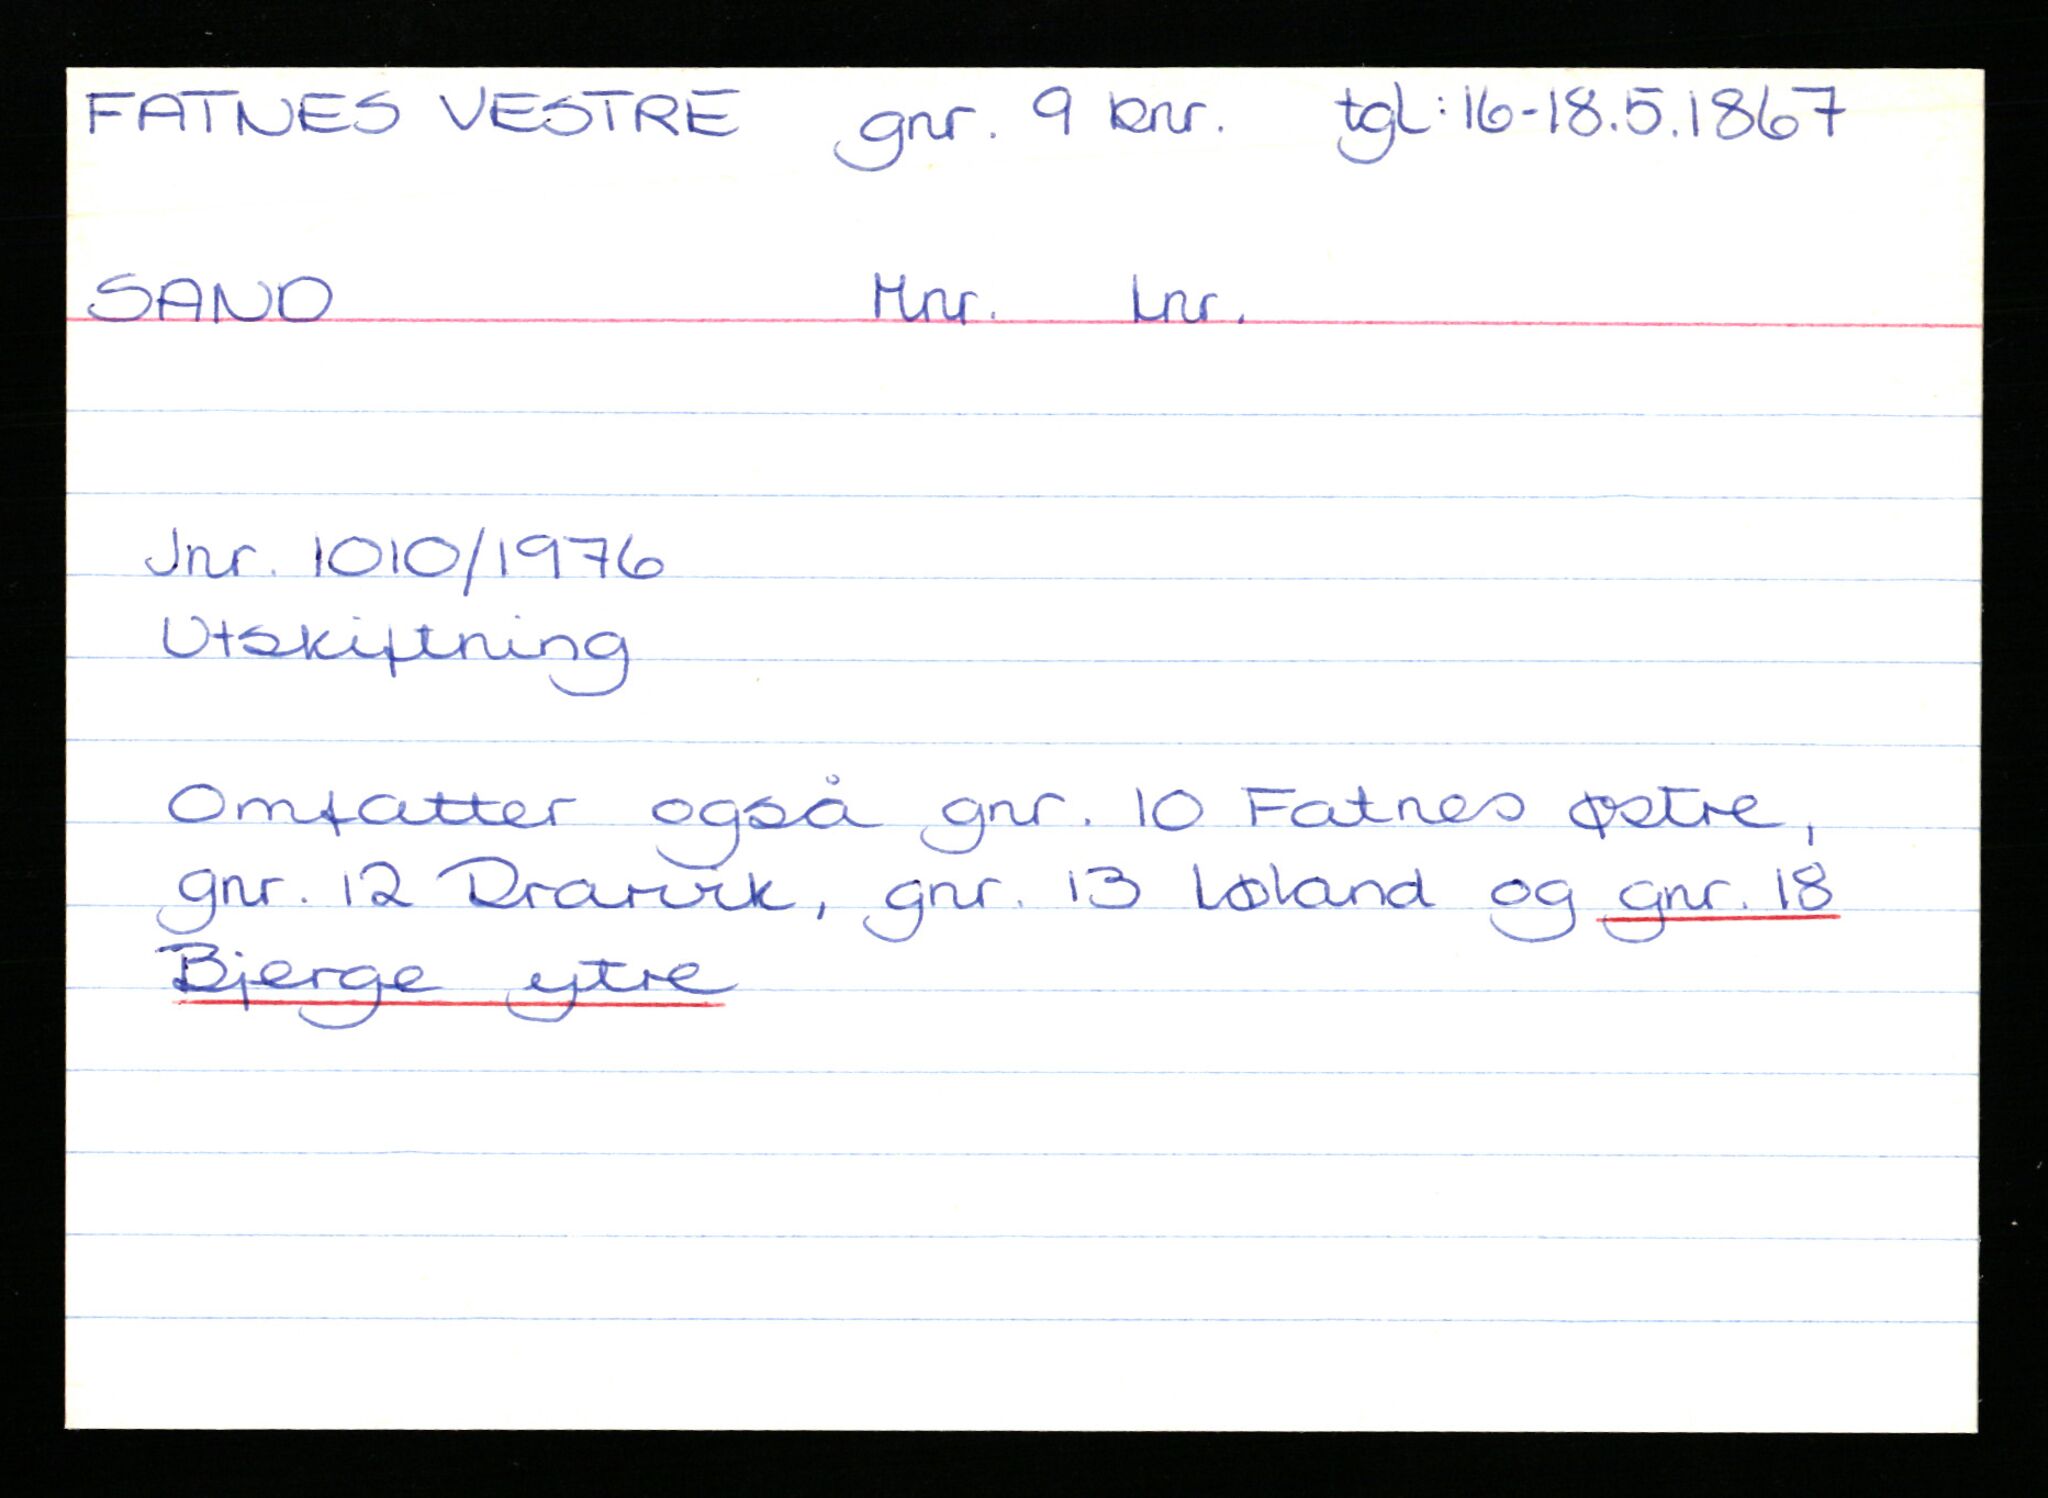 FATNES VESTRE gnr. 9 bnr. tgl: 16-18.5.1867
SAND Mnr. Lnr.
Jnr. 1010/1976
Utskiftning
Omfatter også gnr. 10 Fatnes østre,
gnr. 12 Drarvik, gnr. 13 Løland og gnr. 18
Bjerge ytre